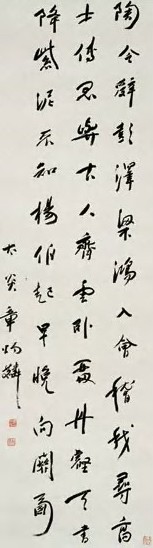 陶令辭彭澤梁鴻入會稽我尋高
士傳君與古人齊雲卧留丹壑天書
降紫泥不知楊伯起早晚向關西
太炎章炳麟